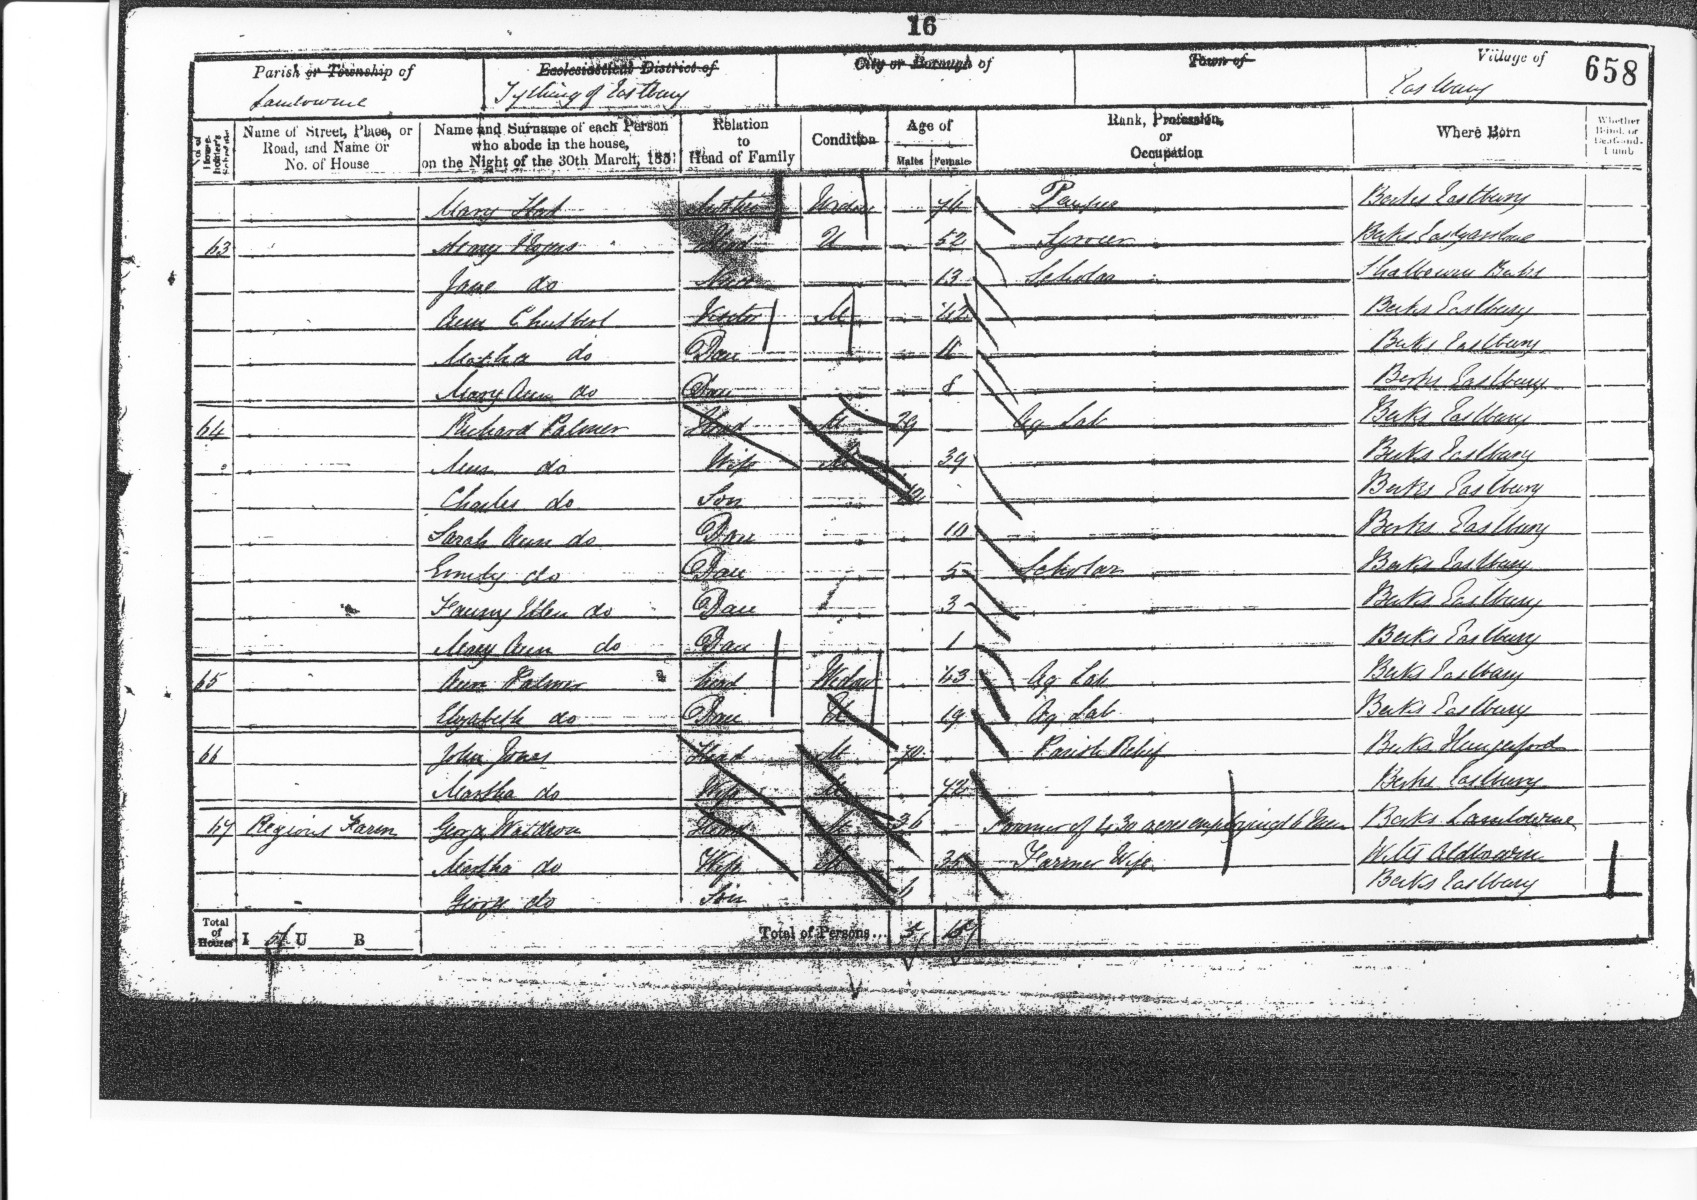 16
Parish or Township of Ecclesiastical District of City or Borough of Town of Village of 658
Lambourne Tything of Eastbury Eastbury
No. of House-holder's Schedule Name of Street, Place, or Road, and Name or No. of House Name and Surname of each Person who abode in the house, on the Night of the 30th March, 1851 Relation to Head of Family Condition Age of Males Females Rank, Profession, or Occupation Where Born Whether Blind, or Deaf-and-Dumb
Mary Widow 74 Pauper Berks Eastbury
63 Head U 52 Grocer Berks Eastgarstone
Jane do 13 Scholar Shalbourn Berks
Ann Visitor M 42 Berks Eastbury
Martha do Dau 11 Berks Eastbury
Mary Ann do Dau 8 Berks Eastbury
64 Richard Palmer Head M 39 Ag Lab Berks Eastbury
Ann do Wife M 39 Berks Eastbury
Charles do Son 12 Berks Eastbury
Sarah Ann do Dau 10 Berks Eastbury
Emily do Dau 5 Scholar Berks Eastbury
Fanny Ellen do Dau 3 Berks Eastbury
Mary Ann do Dau 1 Berks Eastbury
65 Ann Palmer head Widow 43 Ag Lab Berks Eastbury
Elizabeth do Dau U 19 Ag Lab Berks Eastbury
66 John Jones Head M 70 Parish Relief Berks Hungerford
Martha do Wife M 72 Berks Eastbury
67 Farm George Waldron Head M 36 Farmer of 430 acres employing 16 Men Berks Lambourne
Martha do Wife M 35 Farmer Wife Wilts Aldbourn
George do Son 6 Berks Eastbury
Total of Houses I 5 U B Total of Persons... 5 15